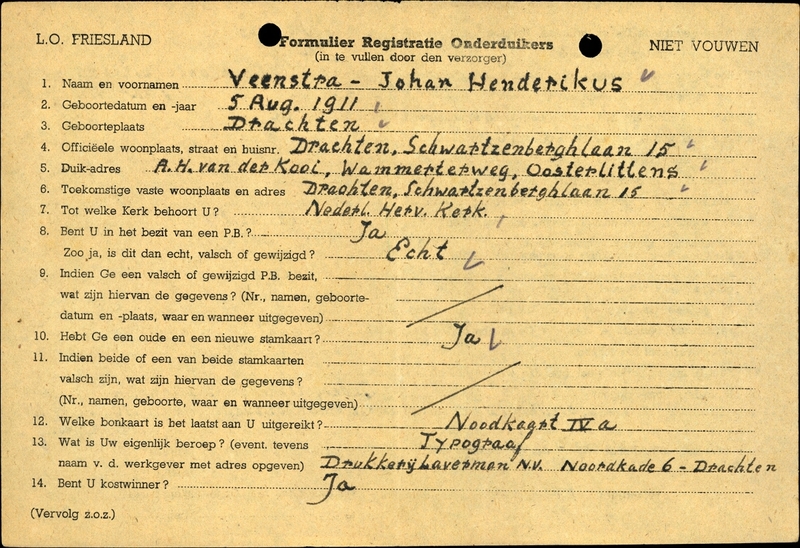 L.O. FRIESLAND
Formulier Registratie Onderduikers
(in te vullen door den verzorger)
NIET VOUWEN
1. Naam en voornamen Veenstra - Johan Henderikus
2. Geboortedatum en -jaar 5 Aug. 1911
3. Geboorteplaats Drachten
4. Officiëele woonplaats, straat en huisnr. Drachten, Schwartzenberghlaan 15
5. Duik-adres A.H. van der Kooi, Wammerterweg, Oosterlittens
6. Toekomstige vaste woonplaats en adres Drachten, Schwartzenberghlaan 15
7. Tot welke Kerk behoort U? Nederl. Herv. Kerk.
8. Bent U in het bezit van een P.B.? Ja
Zoo ja, is dit dan echt, valsch of gewijzigd? Echt
9. Indien Ge een valsch of gewijzigd P.B. bezit,
wat zijn hiervan de gegevens? (Nr., namen, geboorte-
datum en -plaats, waar en wanneer uitgegeven)
10. Hebt Ge een oude en een nieuwe stamkaart? Ja
11. Indien beide of een van beide stamkaarten
valsch zijn, wat zijn hiervan de gegevens?
(Nr., namen, geboorte, waar en wanneer uitgegeven)
12. Welke bonkaart is het laatst aan U uitgereikt? Noodkaart IV a
13. Wat is Uw eigenlijk beroep? (event. tevens Typograaf
naam v. d. werkgever met adres opgeven) Drukkerij Laverman N.V. Noordkade 6 - Drachten
14. Bent U kostwinner? Ja
(Vervolg z.o.z.)